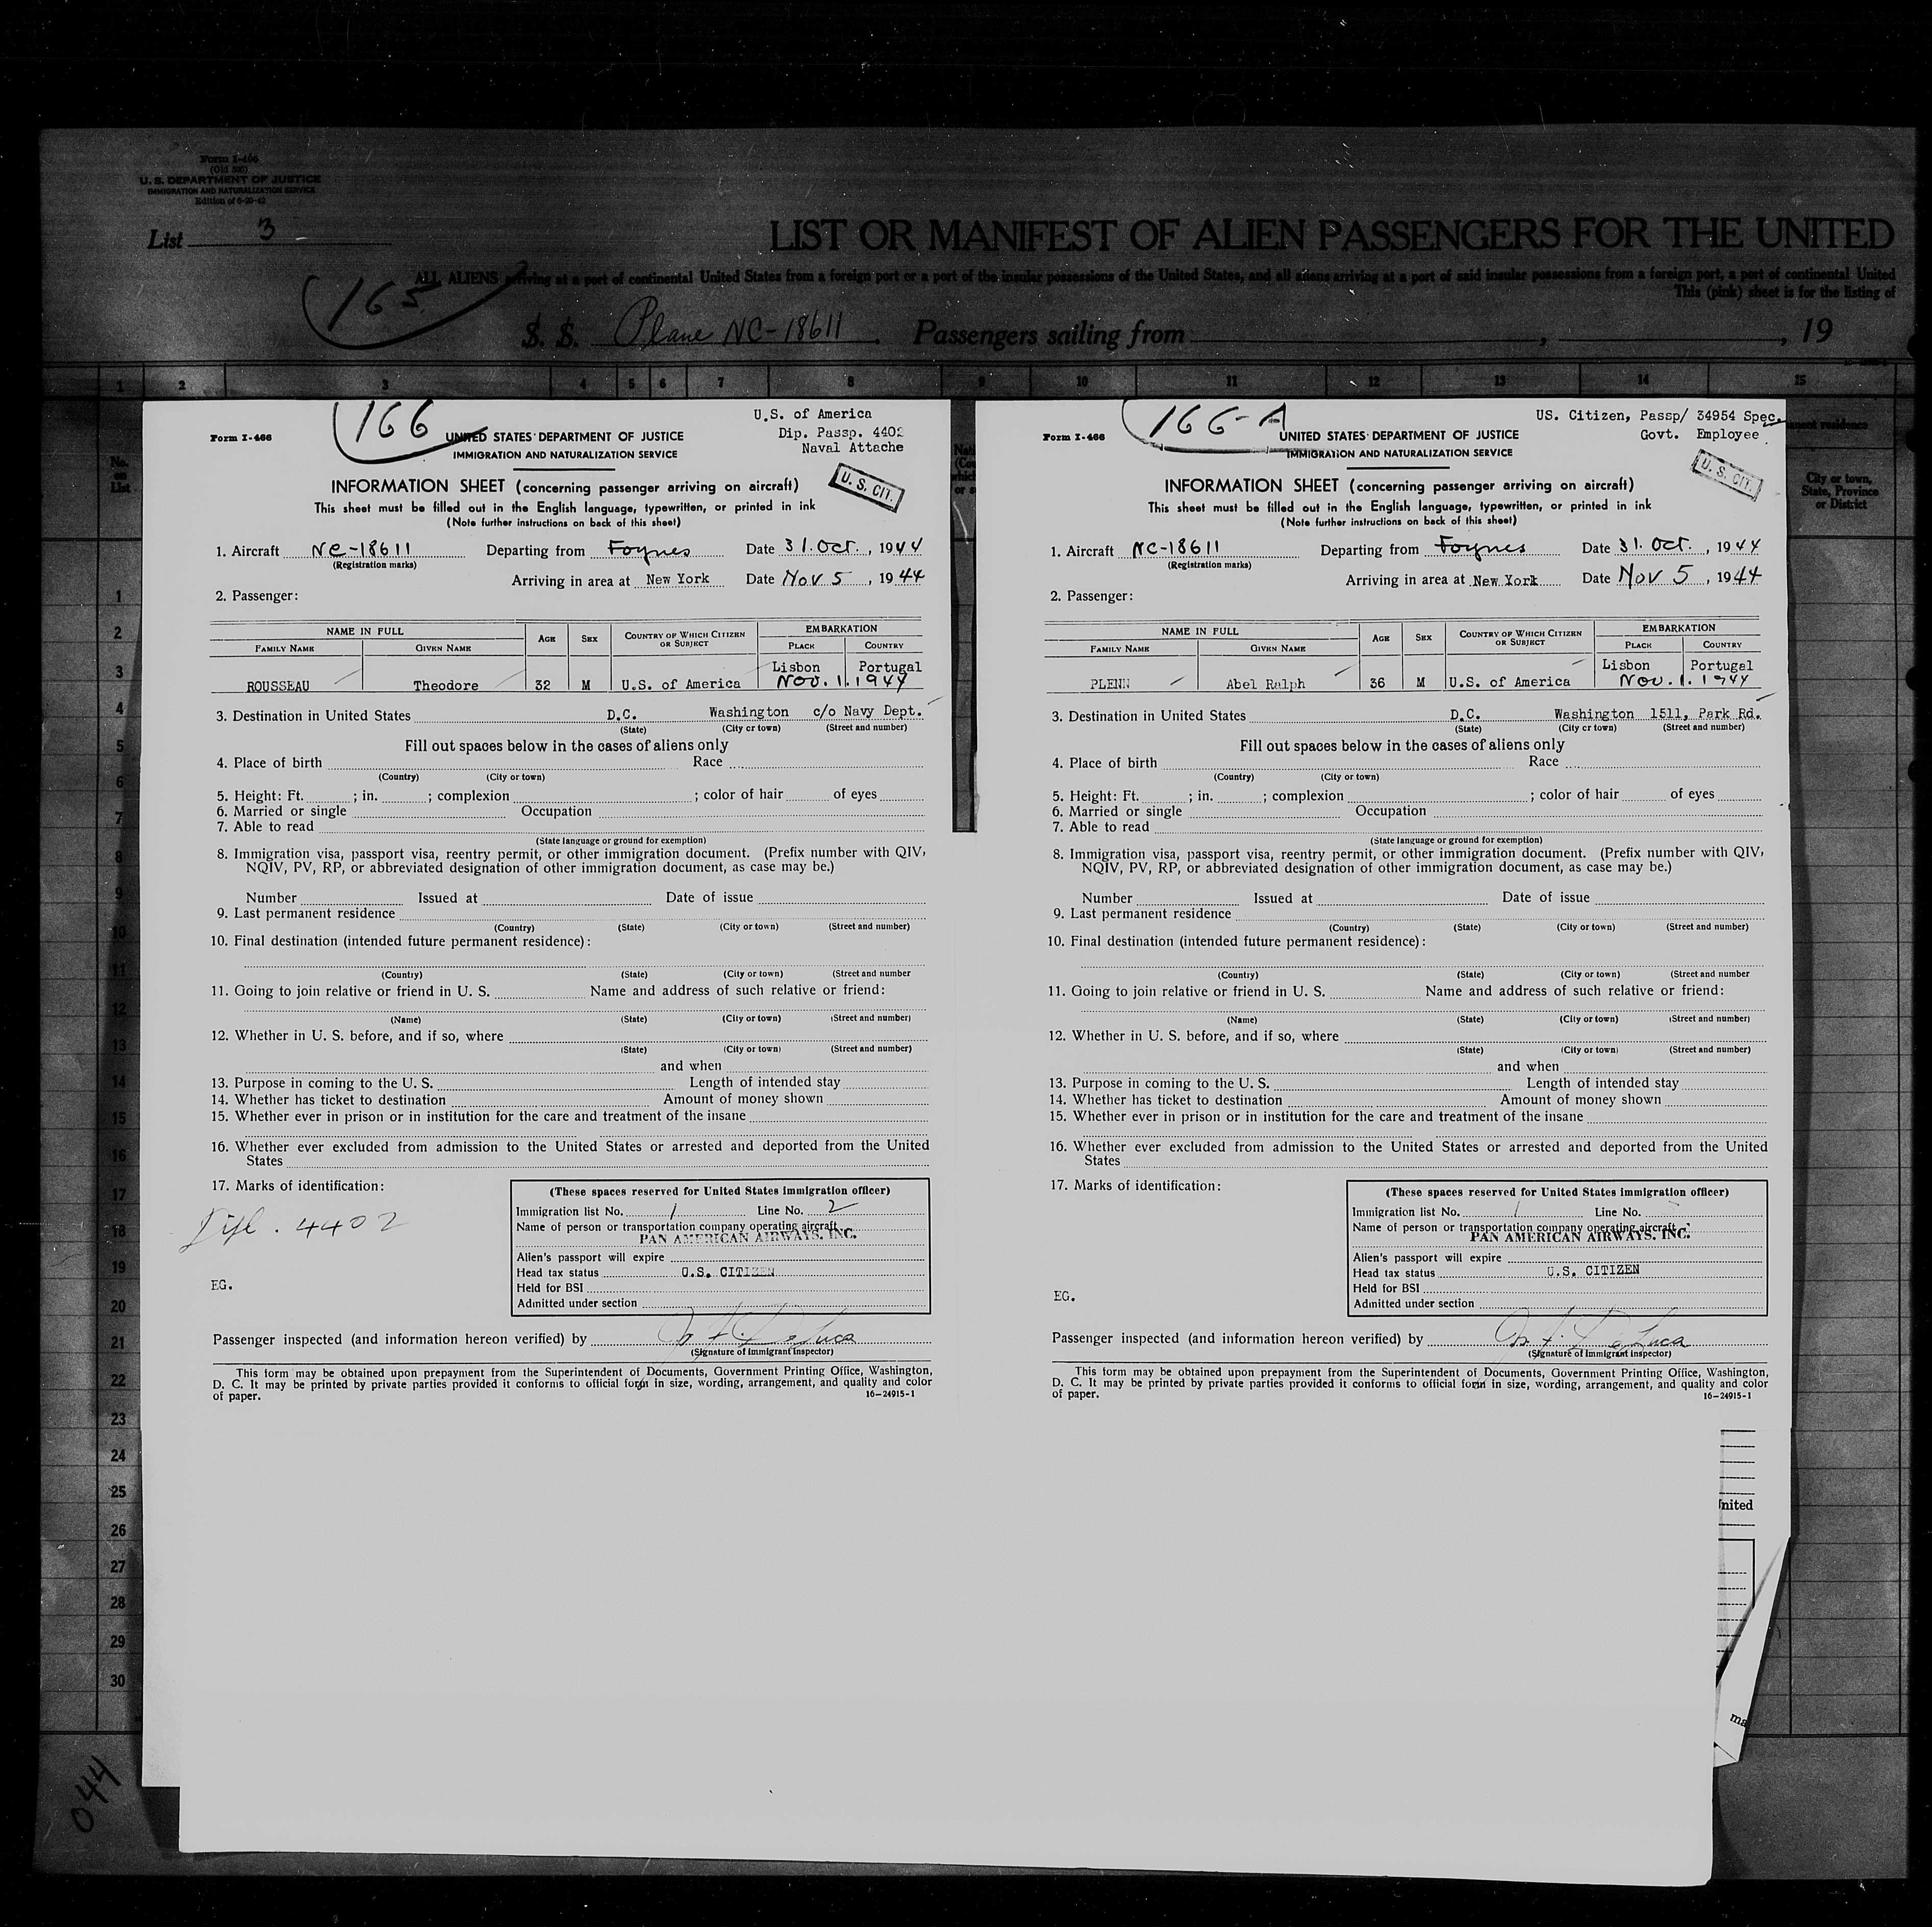 Form I-466
(Old 500)
U. S. DEPARTMENT OF JUSTICE
IMMIGRATION AND NATURALIZATION SERVICE
Edition of 6-20-42
List 3
LIST OR MANIFEST OF ALIEN PASSENGERS FOR THE UNITED
ALL ALIENS arriving at a port of continental United States from a foreign port or a port of the insular possessions of the United States, and all aliens arriving at a port of said insular possessions from a foreign port, a port of continental United
This (pink) sheet is for the listing of
165
S. S. Plane NC-18611 . Passengers sailing from , , 19
1 2 3 4 5 6 7 8 9 10 11 12 13 14 15
No. on List
City or town, State, Province or District
166
U.S. of America
Dip. Passp. 4402
Naval Attache
Form I-466
UNITED STATES DEPARTMENT OF JUSTICE
IMMIGRATION AND NATURALIZATION SERVICE
U. S. CIT.
INFORMATION SHEET (concerning passenger arriving on aircraft)
This sheet must be filled out in the English language, typewritten, or printed in ink
(Note further instructions on back of this sheet)
1. Aircraft NC-18611 Departing from Foynes Date 31. Oct. , 1944
(Registration marks)
Arriving in area at New York Date Nov 5 , 1944
2. Passenger:
NAME IN FULL AGE SEX COUNTRY OF WHICH CITIZEN OR SUBJECT EMBARKATION
FAMILY NAME GIVEN NAME PLACE COUNTRY
Lisbon Portugal
ROUSSEAU Theodore 32 M U.S. of America Nov. 1. 1944
3. Destination in United States D.C. Washington c/o Navy Dept.
(State) (City or town) (Street and number)
Fill out spaces below in the cases of aliens only
4. Place of birth Race
(Country) (City or town)
5. Height: Ft. ; in. ; complexion ; color of hair of eyes
6. Married or single Occupation
7. Able to read
(State language or ground for exemption)
8. Immigration visa, passport visa, reentry permit, or other immigration document. (Prefix number with QIV,
NQIV, PV, RP, or abbreviated designation of other immigration document, as case may be.)
Number Issued at Date of issue
9. Last permanent residence
(Country) (State) (City or town) (Street and number)
10. Final destination (intended future permanent residence):
(Country) (State) (City or town) (Street and number
11. Going to join relative or friend in U. S. Name and address of such relative or friend:
(Name) (State) (City or town) (Street and number)
12. Whether in U. S. before, and if so, where
(State) (City or town) (Street and number)
and when
13. Purpose in coming to the U. S. Length of intended stay
14. Whether has ticket to destination Amount of money shown
15. Whether ever in prison or in institution for the care and treatment of the insane
16. Whether ever excluded from admission to the United States or arrested and deported from the United
States
17. Marks of identification:
Dipl. 4402
EG.
(These spaces reserved for United States immigration officer)
Immigration list No. 1 Line No. 2
Name of person or transportation company operating aircraft
PAN AMERICAN AIRWAYS. INC.
Alien's passport will expire
Head tax status U.S. CITIZEN
Held for BSI
Admitted under section
Passenger inspected (and information hereon verified) by
(Signature of Immigrant Inspector)
This form may be obtained upon prepayment from the Superintendent of Documents, Government Printing Office, Washington,
D. C. It may be printed by private parties provided it conforms to official form in size, wording, arrangement, and quality and color
of paper. 16—24915-1
166-A
US. Citizen, Passp/ 34954 Spec.
Govt. Employee
Form I-466
UNITED STATES DEPARTMENT OF JUSTICE
IMMIGRATION AND NATURALIZATION SERVICE
U. S. CIT.
INFORMATION SHEET (concerning passenger arriving on aircraft)
This sheet must be filled out in the English language, typewritten, or printed in ink
(Note further instructions on back of this sheet)
1. Aircraft NC-18611 Departing from Foynes Date 31. Oct. , 1944
(Registration marks)
Arriving in area at New York Date Nov 5 , 1944
2. Passenger:
NAME IN FULL AGE SEX COUNTRY OF WHICH CITIZEN OR SUBJECT EMBARKATION
FAMILY NAME GIVEN NAME PLACE COUNTRY
Lisbon Portugal
PLENN Abel Ralph 36 M U.S. of America Nov. 1. 1944
3. Destination in United States D.C. Washington 1511, Park Rd.
(State) (City or town) (Street and number)
Fill out spaces below in the cases of aliens only
4. Place of birth Race
(Country) (City or town)
5. Height: Ft. ; in. ; complexion ; color of hair of eyes
6. Married or single Occupation
7. Able to read
(State language or ground for exemption)
8. Immigration visa, passport visa, reentry permit, or other immigration document. (Prefix number with QIV,
NQIV, PV, RP, or abbreviated designation of other immigration document, as case may be.)
Number Issued at Date of issue
9. Last permanent residence
(Country) (State) (City or town) (Street and number)
10. Final destination (intended future permanent residence):
(Country) (State) (City or town) (Street and number
11. Going to join relative or friend in U. S. Name and address of such relative or friend:
(Name) (State) (City or town) (Street and number)
12. Whether in U. S. before, and if so, where
(State) (City or town) (Street and number)
and when
13. Purpose in coming to the U. S. Length of intended stay
14. Whether has ticket to destination Amount of money shown
15. Whether ever in prison or in institution for the care and treatment of the insane
16. Whether ever excluded from admission to the United States or arrested and deported from the United
States
17. Marks of identification:
EG.
(These spaces reserved for United States immigration officer)
Immigration list No. 1 Line No.
Name of person or transportation company operating aircraft
PAN AMERICAN AIRWAYS. INC.
Alien's passport will expire
Head tax status U.S. CITIZEN
Held for BSI
Admitted under section
Passenger inspected (and information hereon verified) by
(Signature of Immigrant Inspector)
This form may be obtained upon prepayment from the Superintendent of Documents, Government Printing Office, Washington,
D. C. It may be printed by private parties provided it conforms to official form in size, wording, arrangement, and quality and color
of paper. 16—24915-1
1
2
3
4
5
6
7
8
9
10
11
12
13
14
15
16
17
18
19
20
21
22
23
24
25
26
27
28
29
30
044